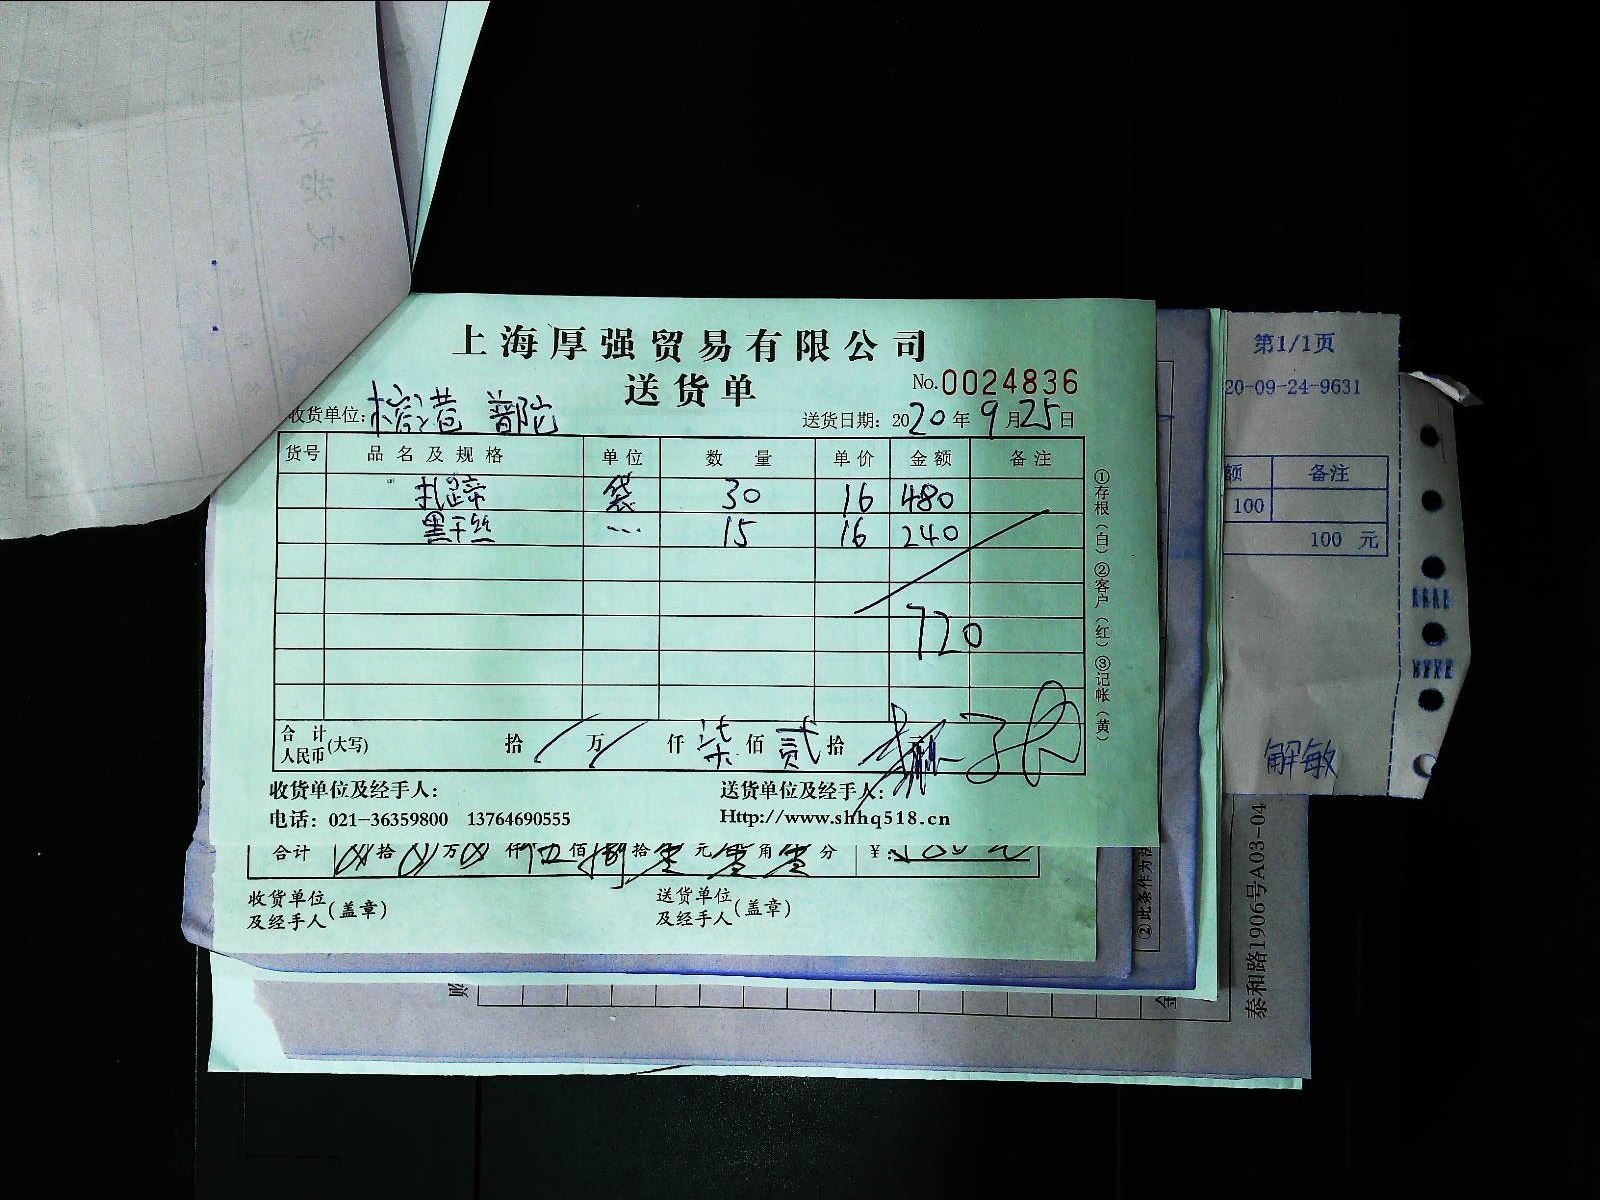 上海厚强贸易有限公司
送货单
No.0024836
收货单位: 普陀
送货日期: 2020年9月25日
货号 品名及规格 单位 数量 单价 金额 备注
扎蹄 袋 30 16 480
黑干丝 … 15 16 240
720
合计人民币(大写) 拾 / 万 / 仟 柒 佰 贰 拾
收货单位及经手人:
送货单位及经手人:
电话: 021-36359800 13764690555
Http://www.shhq518.cn
①存根(白)②客户(红)③记帐(黄)
合计 拾 万 仟 伍 佰 捌 拾 零 元 零 角 零 分 ¥:
收货单位及经手人(盖章)
送货单位及经手人(盖章)
第1/1页
20-09-24-9631
额 备注
100
100 元
解敏
②此条作为
泰和路1906号A03-04
账
金